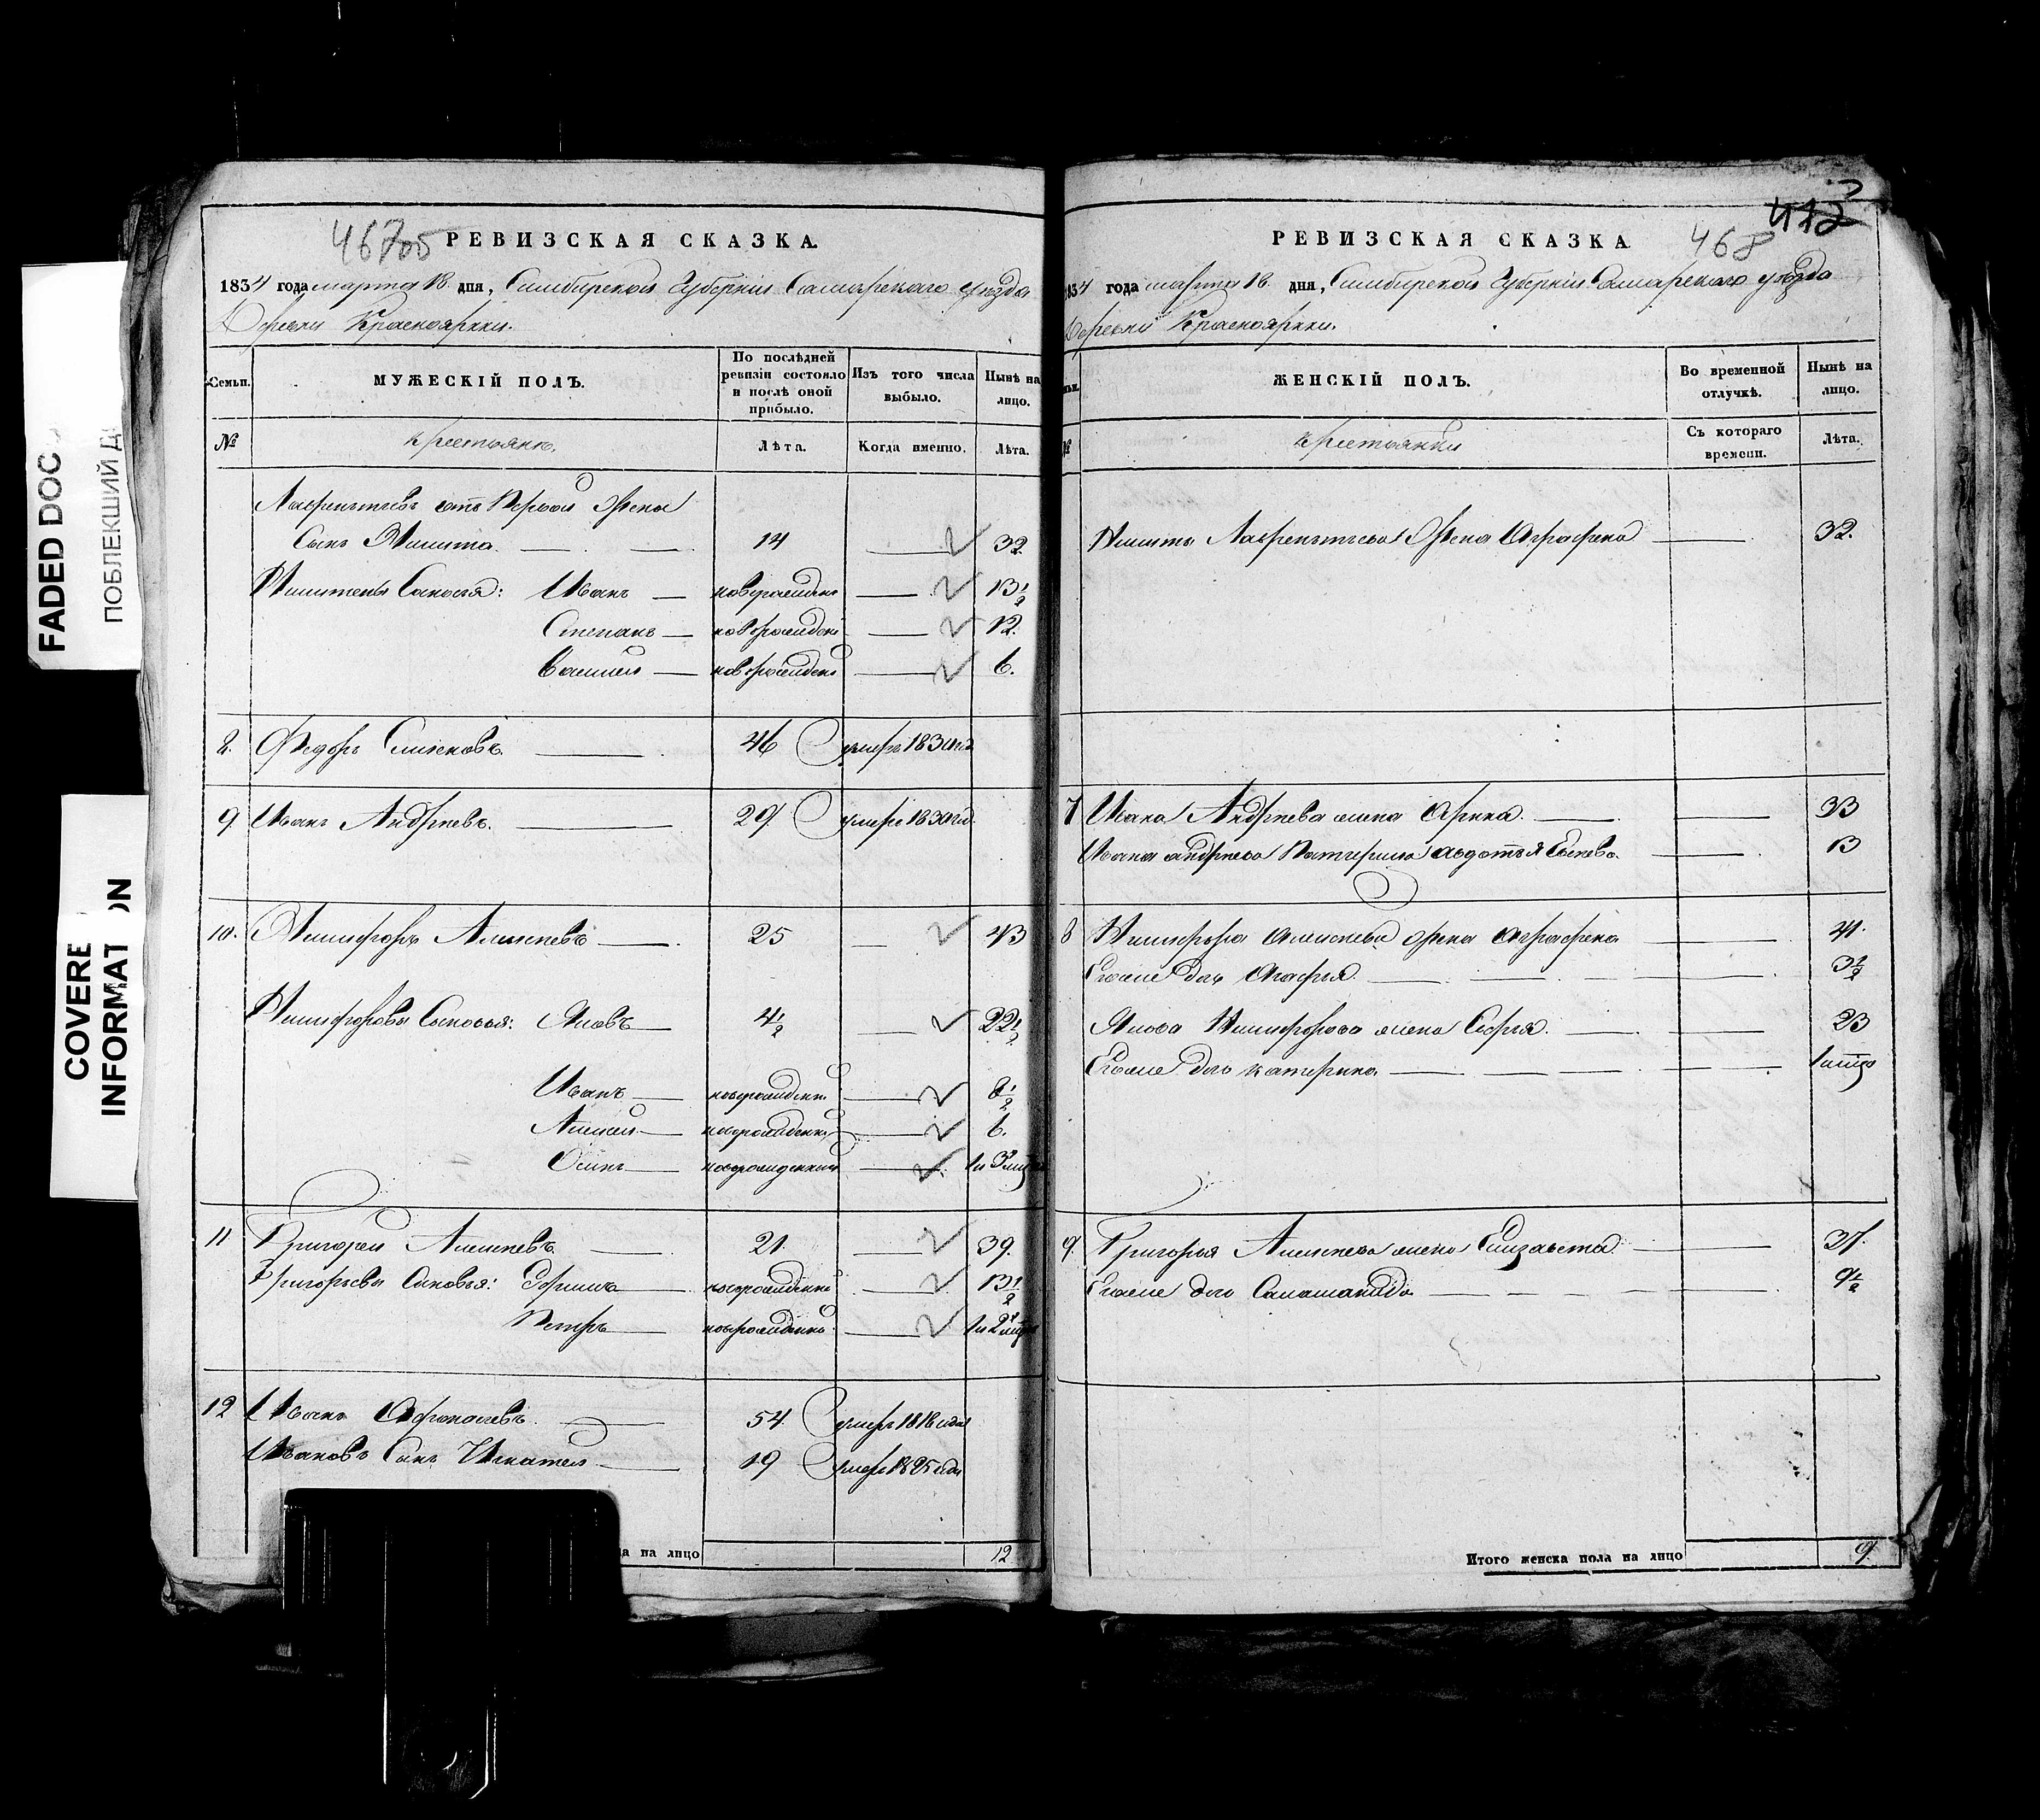 FADED DOC
ПОБЛЕКШИЙ Д
COVERE
INFORMAT ON
467
РЕВИЗСКАЯ СКАЗКА.
1834 года марта 18. дня, Симбирской Губернiи Самарскаго уезда
Деревни Красноярки.
Семьи.
МУЖЕСКІЙ ПОЛЪ.
По послѣдней ревизіи состояло и послѣ оной прибыло.
Изъ того числа выбыло.
Нынѣ на лицо.
№
крестьянъ.
Лѣта.
Когда именно.
Лѣта.
Лаврентьевъ отъ Первой Жены
Сынъ Никита 14 32
Никитены Сыновья: Иванъ новорожденный 13 1/2
Степанъ новорожденный 12.
Василей новорожденный 6.
8. Федоръ Семеновъ. 46 умеръ 1830 года
9 Иванъ Андреевъ. 29 умеръ 1830 года
10. Никифоръ Алексеевъ 25 43
Никифоровы Сыновья: Яковъ 4 1/2 22 1/2
Иванъ новорожденный 8 1/2
Алексей новорожденный 6.
Осипъ новорожденный 1 и 3 мца
11 Григорей Алексеевъ 21. 39.
Григорьевы Сыновья: новорожденный 13 1/2
Петръ новорожденный 1 и 2 мца
12 Иванъ Афонасьевъ. 54 умеръ 1818 года
Ивановъ Сынъ Игнатей 19 умеръ 1825 года
на лицо 12
468
РЕВИЗСКАЯ СКАЗКА
1834 года марта 18. дня, Симбирской Губернiи Самарскаго уезда
Деревни Красноярки.
ЖЕНСКІЙ ПОЛЪ.
Во временной отлучкѣ.
Нынѣ на лицо.
№
крестьянки
Съ котораго времени.
Лѣта.
Никиты Лаврентьева Жена Аграфена 32.
7 Ивана Андреева жена Арина. 33
Ивана андреева авдотья 13
8 Никифора алексеева жена Аграфена 41.
Егоже дочь Агафья. 3 1/2
Якова Никифорова жена Софья. 23
Егоже дочь катерина. 1 мца
9. Григорья Алексеева жена Елизавета 37.
Егоже дочь Саломанида 9 1/2
Итого женска пола на лицо 9.